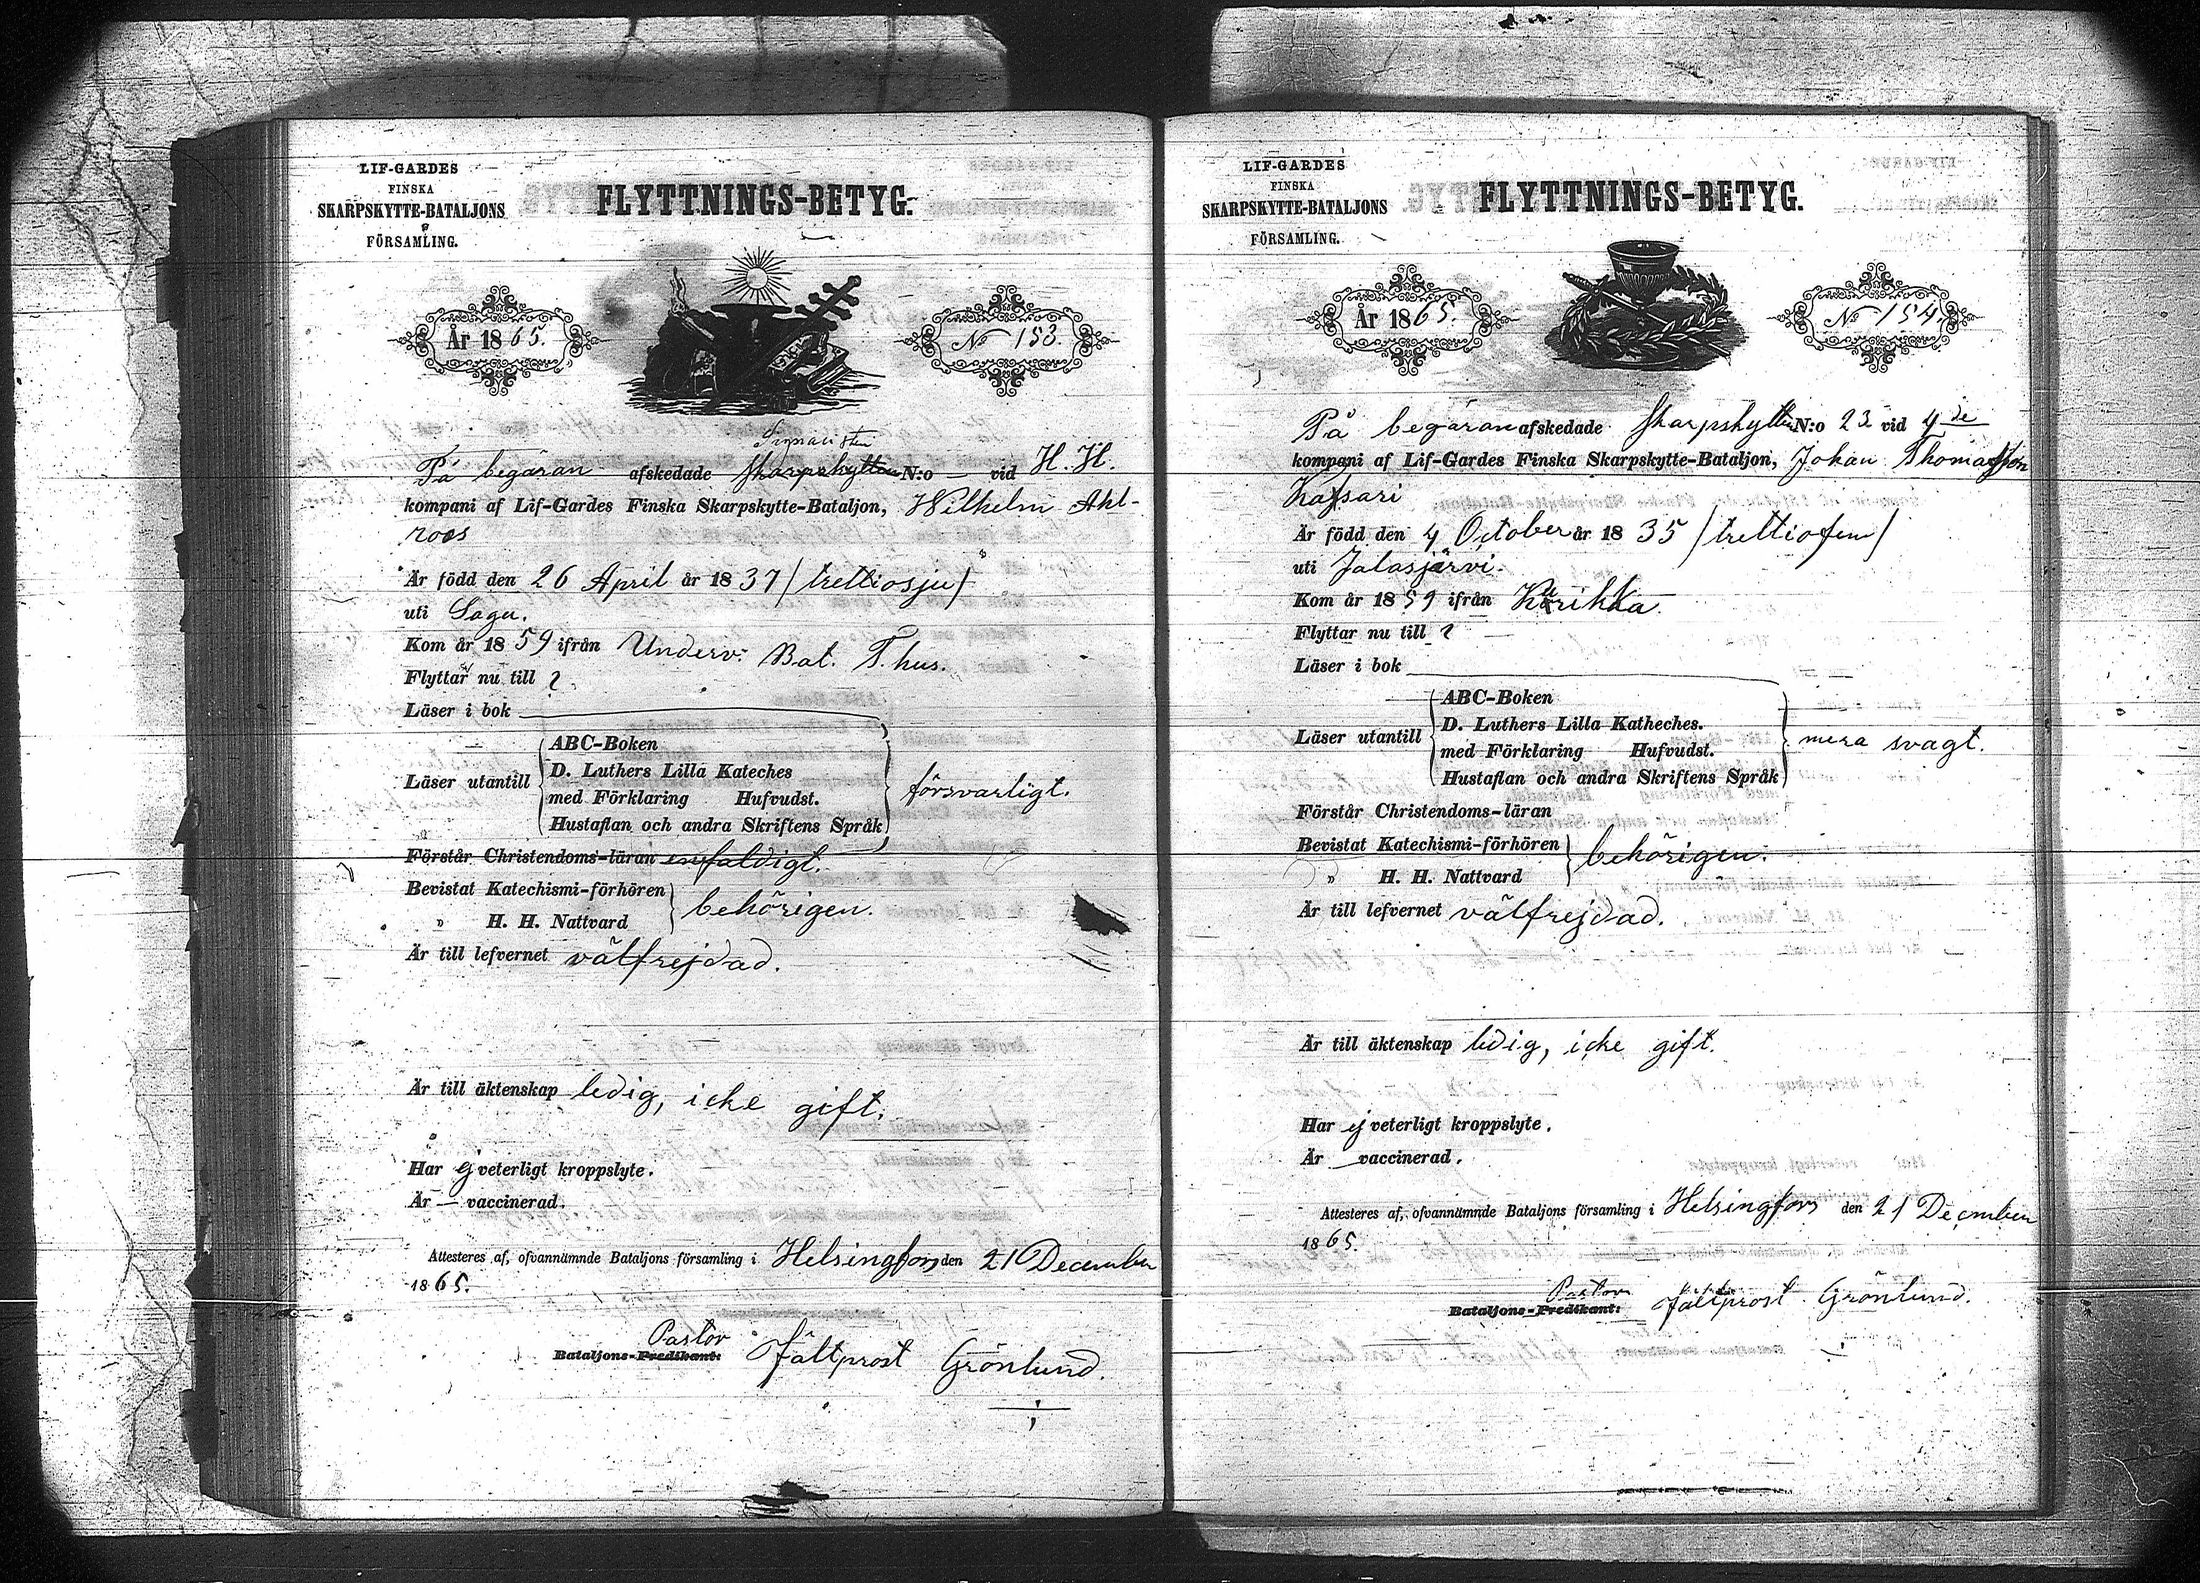 LIF-GARDES
FINSKA
SKARPSKYTTE-BATALJONS
FÖRSAMLING.
FLYTTNINGS-BETYG.
År 1865.
No 153.
Signalisten
På begäran afskedade Skarpskytten N:o — vid H. H.
kompani af Lif-Gardes Finska Skarpskytte-Bataljon, Wilhelm Ahl-
roos
Är född den 26 April år 1837 /trettiosju/
uti Sagu.
Kom år 1859 ifrån Underv. Bat. T.hus.
Flyttar nu till ?
Läser i bok
Läser utantill
ABC-Boken
D. Luthers Lilla Kateches
med Förklaring Hufvudst.
Hustaflan och andra Skriftens Språk
försvarligt.
Förstår Christendoms-läran enfaldigt.
Bevistat Katechismi-förhören
" H. H. Nattvard
behörigen.
Är till lefvernet välfrejdad.
Är till äktenskap ledig, icke gift.
Har ej veterligt kroppslyte.
Är — vaccinerad.
Attesteras af, ofvannämnde Bataljons församling i Helsingfors den 21 December
1865.
Pastor
Bataljons-Predikant: Fältprost Grönlund.
LIF-GARDES
FINSKA
SKARPSKYTTE-BATALJONS
FÖRSAMLING.
FLYTTNINGS-BETYG.
År 1865.
No 154.
På begäran afskedade Skarpskytten N:o 23 vid 4de
kompani af Lif-Gardes Finska Skarpskytte-Bataljon, Johan Thomasson
Kassari
Är född den 4 October år 1835 /trettiofem/
uti Jalasjärvi.
Kom år 1859 ifrån Kurikka.
Flyttar nu till ?
Läser i bok
Läser utantill
ABC-Boken
D. Luthers Lilla Katheches.
med Förklaring Hufvudst.
Hustaflan och andra Skriftens Språk
mera svagt.
Förstår Christendoms-läran
Bevistat Katechismi-förhören
" H. H. Nattvard
behörigen.
Är till lefvernet välfrejdad.
Är till äktenskap ledig, icke gift.
Har ej veterligt kroppslyte.
Är — vaccinerad.
Attesteres af, ofvannämnde Bataljons församling i Helsingfors den 21 December
1865.
Pastor
Bataljons-Predikant: Fältprost Grönlund.